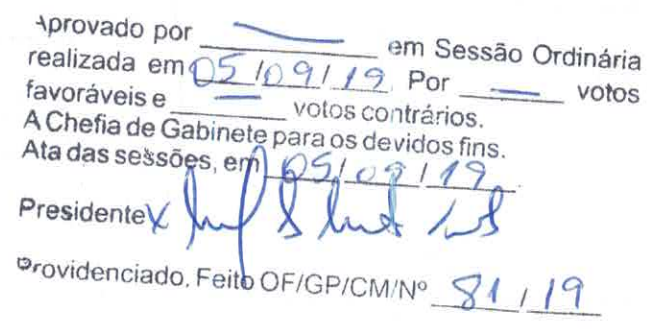 Aprovado por — em Sessão Ordinária
realizada em 05/09/19 Por — votos
favoráveis e — votos contrários.
A Chefia de Gabinete para os devidos fins.
Ata das sessões, em 05/09/19
Presidente X
Providenciado. Feito OF/GP/CM/Nº 81/19